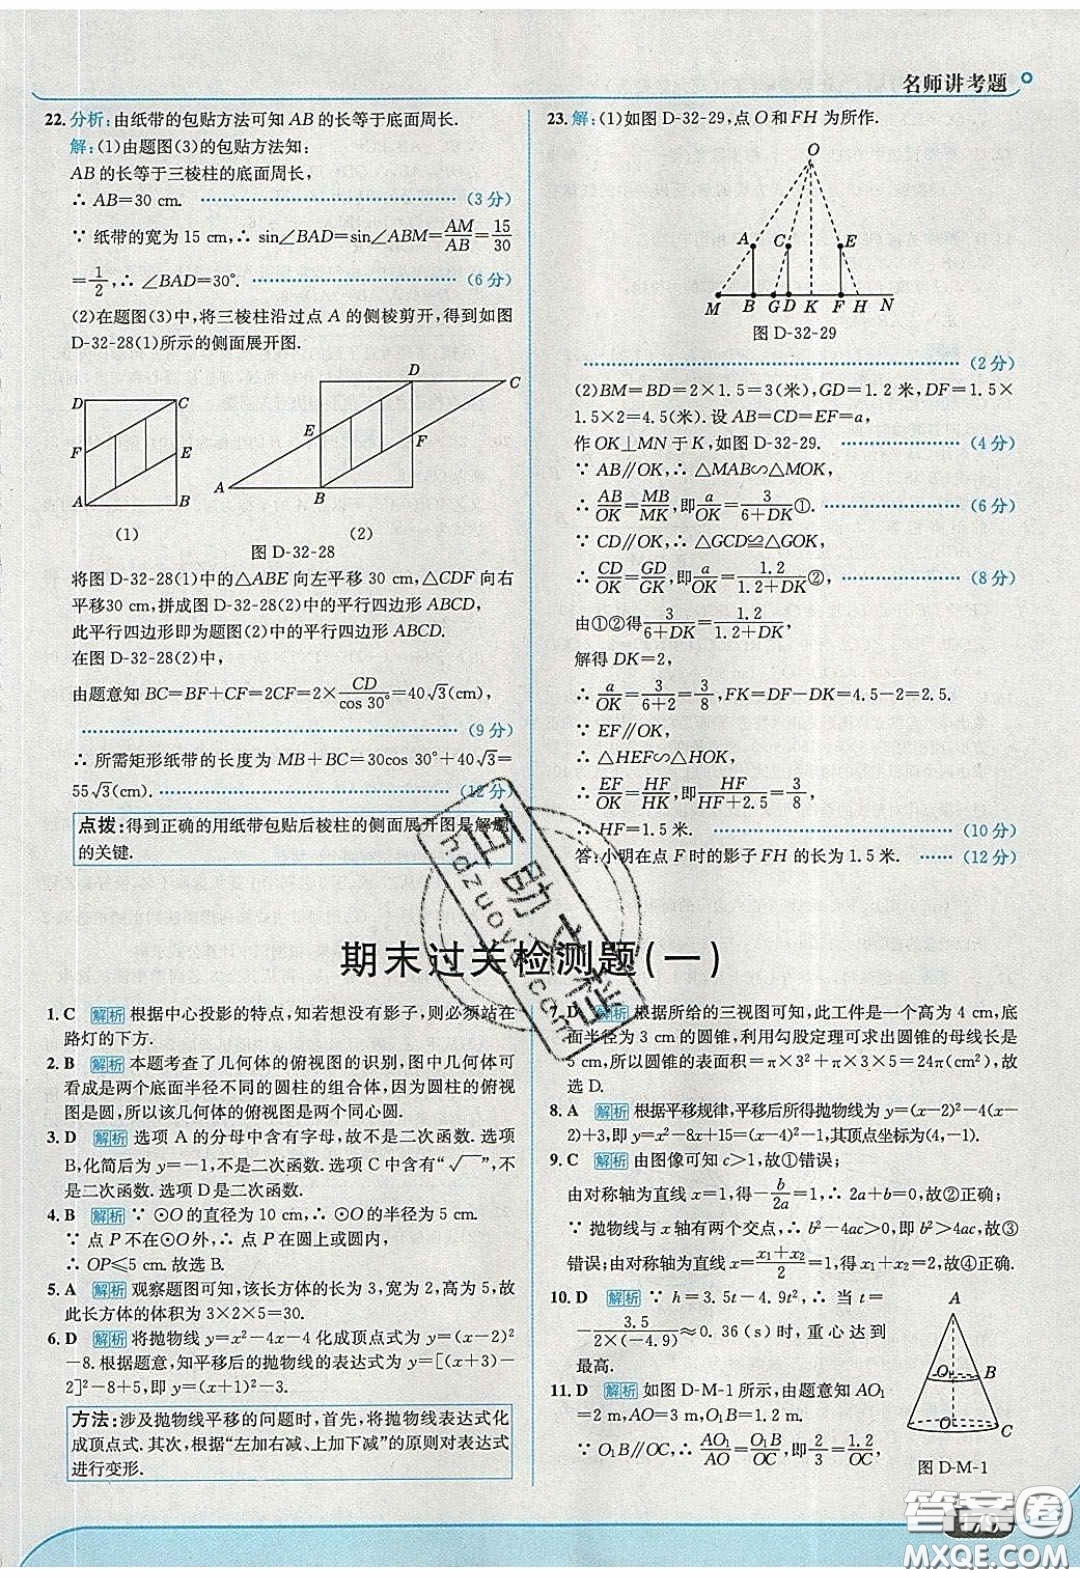 名师讲考题
22. 分析:由纸带的包贴方法可知 AB 的长等于底面周长.
解:(1)由题图(3)的包贴方法知:
AB 的长等于三棱柱的底面周长,
∴ AB=30 cm. (3 分)
∵ 纸带的宽为 15 cm,∴ sin∠BAD=sin∠ABM=AM/AB=15/30
=1/2,∴ ∠BAD=30°. (6 分)
(2)在题图(3)中,将三棱柱沿过点 A 的侧棱剪开,得到如图
D-32-28(1)所示的侧面展开图.
D C F E A B
(1)
D C E F A B
(2)
图 D-32-28
将图 D-32-28(1)中的△ABE 向左平移 30 cm,△CDF 向右
平移30 cm,拼成图 D-32-28(2)中的平行四边形 ABCD,
此平行四边形即为题图(2)中的平行四边形 ABCD.
在图 D-32-28(2)中,
由题意知 BC=BF+CF=2CF=2×CD/cos 30°=40√3(cm),
(9 分)
∴ 所需矩形纸带的长度为 MB+BC=30cos 30°+40√3=
55√3(cm). (12 分)
点拨:得到正确的用纸带包贴后棱柱的侧面展开图是解题
的关键.
23. 解:(1)如图 D-32-29,点 O 和 FH 为所作.
O
A C E
M B G D K F H N
图 D-32-29
(2 分)
(2)BM=BD=2×1.5=3(米),GD=1.2 米,DF=1.5×
1.5×2=4.5(米).设 AB=CD=EF=a,
作 OK⊥MN 于 K,如图 D-32-29. (4 分)
∵ AB∥OK,∴ △MAB∽△MOK,
∴ AB/OK=MB/MK,即a/OK=3/(6+DK)①. (6 分)
∵ CD∥OK,∴ △GCD≌△GOK,
∴ CD/OK=GD/GK,即a/OK=1.2/(1.2+DK)②, (8 分)
由①②得3/(6+DK)=1.2/(1.2+DK),
解得 DK=2,
∴ a/OK=3/(6+2)=3/8,FK=DF-DK=4.5-2=2.5.
∵ EF∥OK,
∴ △HEF∽△HOK,
∴ EF/OK=HF/HK,即HF/(HF+2.5)=3/8,
∴ HF=1.5 米. (10 分)
答:小明在点 F 时的影子 FH 的长为 1.5 米. (12 分)
期末过关检测题(一)
1. C 解析 根据中心投影的特点,知若想没有影子,则必须站在
路灯的下方.
2. B 解析 本题考查了几何体的俯视图的识别,图中几何体可
看成是两个底面半径不同的圆柱的组合体,因为圆柱的俯视
图是圆,所以该几何体的俯视图是两个同心圆.
3. D 解析 选项 A 的分母中含有字母,故不是二次函数.选项
B,化简后为 y=-1,不是二次函数.选项 C 中含有"√ ",不
是二次函数.选项 D 是二次函数.
4. B 解析 ∵ ⊙O 的直径为 10 cm,∴ ⊙O 的半径为 5 cm.
∵ 点 P 不在⊙O 外,∴ 点 P 在圆上或圆内,
∴ OP≤5 cm.故选 B.
5. A 解析 观察题图可知,该长方体的长为 3,宽为 2,高为 5,故
此长方体的体积为 3×2×5=30.
6. D 解析 将抛物线 y=x²-4x-4 化成顶点式为 y=(x-2)²
-8.根据题意,知平移后的抛物线的表达式为 y=[(x+3)-
2]²-8+5,即 y=(x+1)²-3.
方法:涉及抛物线平移的问题时,首先,将抛物线表达式化
成顶点式.其次,根据"左加右减、上加下减"的原则对表达式
进行变形.
7. D 解析 根据所给的三视图可知,此工件是一个高为 4 cm,底
面半径为 3 cm 的圆锥,利用勾股定理可求出圆锥的母线长是
5 cm,所以圆锥的表面积=π×3²+π×3×5=24π(cm²),故
选 D.
8. A 解析 根据平移规律,平移后所得抛物线为 y=(x-2)²-4(x-
2)+3,即 y=x²-8x+15=(x-4)²-1,其顶点坐标为(4,-1).
9. C 解析 由图像可知 c>1,故①错误;
由对称轴为直线 x=1,得-b/2a=1,∴ 2a+b=0,故②正确;
∵ 抛物线与 x 轴有两个交点,∴ b²-4ac>0,即 b²>4ac,故③
错误;由对称轴为直线 x=(x₁+x₂)/2=1,得 x₁+x₂=2,故④正确.
10. D 解析 ∵ h=3.5t-4.9t²,∴ 当 t=
-3.5/(2×(-4.9))≈0.36(s)时,重心达到
最高.
11. D 解析 如图 D-M-1 所示,由题意知 AO₁
=2 m,AO=3 m,O₁B=1.2 m.
∵ O₁B∥OC,∴ AO₁/AO=O₁B/OC,即2/3=1.2/OC,
A
O₁ B
O C
图 D-M-1
互助文库
hdzuoye.com
答案圈
MXQE.COM